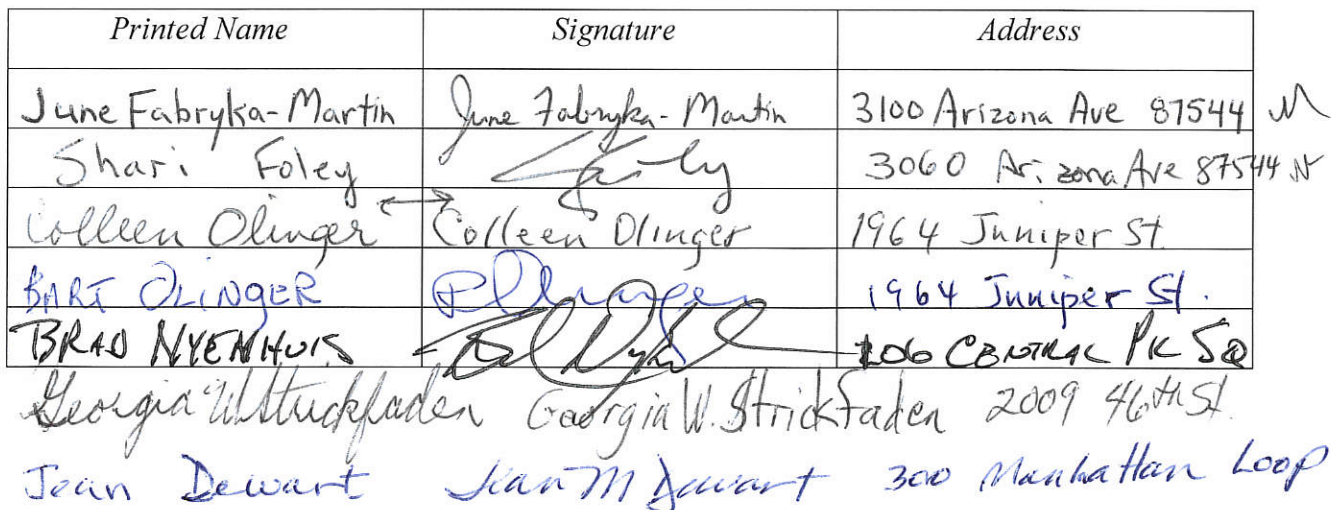 Printed Name Signature Address
June Fabryka-Martin June Fabryka-Martin 3100 Arizona Ave 87544
Shari Foley 3060 Arizona Ave 87544
Colleen Olinger Colleen Olinger 1964 Juniper St.
BART OLINGER 1964 Juniper St.
BRAD NYENHUIS 106 CENTRAL PK SQ
Georgia W. Strickfaden Georgia W. Strickfaden 2009 46th St.
Jean Dewart Jean M Dewart 300 Manhattan Loop